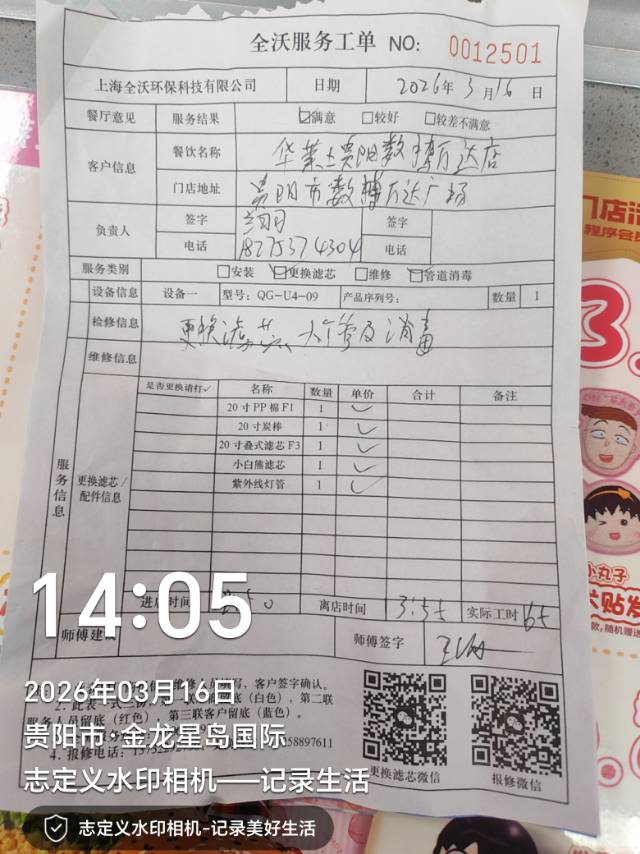 全沃服务工单 NO: 0012501
上海全沃环保科技有限公司 日期 2026年3月16日
餐厅意见 服务结果 ☑满意 □较好 □较差不满意
客户信息 餐饮名称 华莱士贵阳数博万达店
门店地址 贵阳市数博万达广场
负责人 签字 签字
电话 18275374304 电话
服务类别 □安装 ☑更换滤芯 □维修 ☑管道消毒
设备信息 设备一 型号: QG-U4-09 产品序列号: 数量 1
检修信息 更换滤芯 及消毒
维修信息
服务信息
更换滤芯/配件信息
是否更换请打✓ 名称 数量 单价 合计 备注
20寸PP棉F1 1 ✓
20寸炭棒 1 ✓
20寸叠式滤芯F3 1 ✓
小白熊滤芯 1 ✓
紫外线灯管 1 ✓
进店时间 离店时间 实际工时
师傅建 师傅签字
写,客户签字确认。
2. 此表一式三份, 联 底(白色),第二联
服务人员留底(红色),第三联客户留底(蓝色)。
4. 报修电话: 58897611
更换滤芯微信 报修微信
门店活
程序会员
3.
小丸子
大贴发
款,随机赠送
14:05
2026年03月16日
贵阳市·金龙星岛国际
志定义水印相机——记录生活
志定义水印相机-记录美好生活